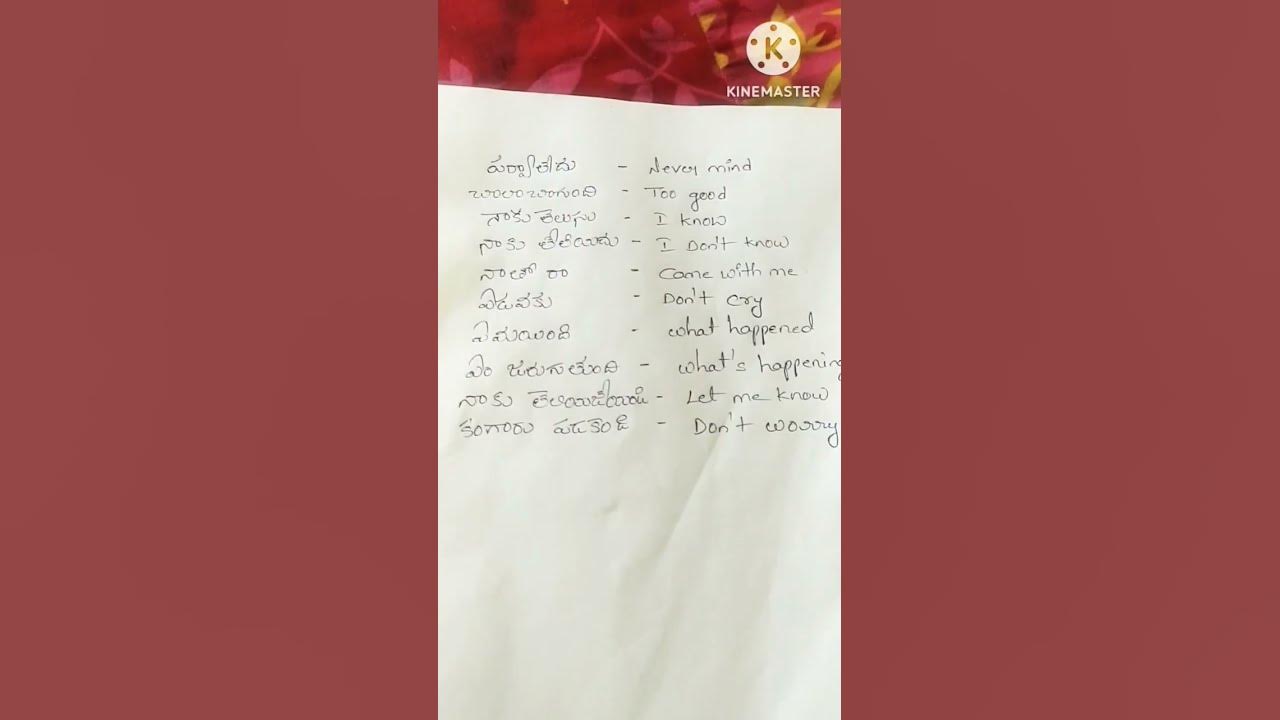 KINEMASTER
పర్వాలేదు - Never mind
చాలా బాగుంది - Too good
నాకు తెలుసు - I know
నాకు తెలియదు - I Don't know
నాతో రా - Come with me
ఏడువకు - Don't cry
ఏమయింది - what happened
ఏం జరుగుతుంది - what's happening
నాకు తెలియజేయండి - Let me know
కంగారు పడకండి - Don't worry